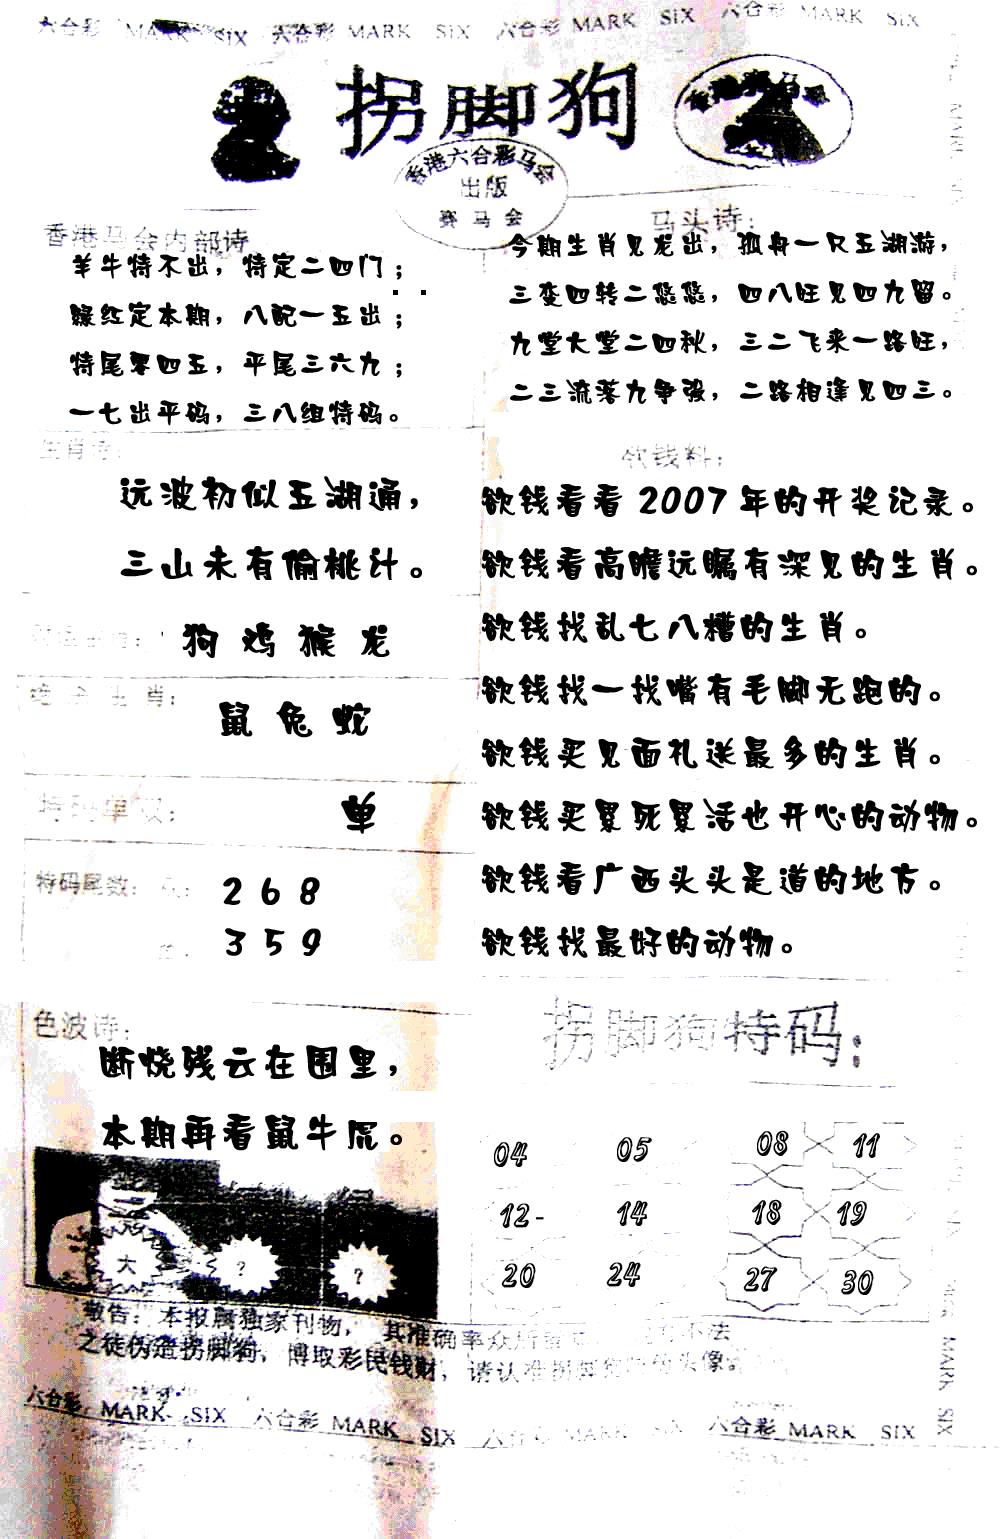 六合彩 MARK SIX 六合彩 MARK SIX 六合彩 MARK SIX 六合彩 MARK SIX
拐脚狗
香港六合彩马会
出版
赛马会
香港马会内部诗
羊牛特不出，特定二四门；
绿红定本期，八配一五出；
特尾零四五，平尾三六九；
一七出平码，三八组特码。
马头诗：
今期生肖见龙出，孤舟一只五湖游，
三变四转二悠悠，四八旺见四九留。
九堂大堂二四秋，三二飞来一路旺，
二三流落九争强，二路相逢见四三。
生肖诗：
远波初似五湖通，
三山未有偷桃计。
狗 鸡 猴 龙
绝杀生肖：
鼠 兔 蛇
特码单双：
单
特码尾数：
2 6 8
3 5 9
欲钱料：
欲钱看看 2007 年的开奖记录。
欲钱看高瞻远瞩有深见的生肖。
欲钱找乱七八糟的生肖。
欲钱找一找嘴有毛脚无跑的。
欲钱买见面礼送最多的生肖。
欲钱买累死累活也开心的动物。
欲钱看广西头头是道的地方。
欲钱找最好的动物。
色波诗：
断烧残云在围里，
本期再看鼠牛虎。
大 ? ?
拐脚狗特码：
04 05 08 11
12- 14 18 19
20 24 27 30
敬告：本报属独家刊物，其准确率众所 不法
之徒伪造拐脚狗，博取彩民钱财，请认准拐脚狗 头像
六合彩 MARK SIX 六合彩 MARK SIX 六合彩 MARK SIX 六合彩 MARK SIX
MARK SIX